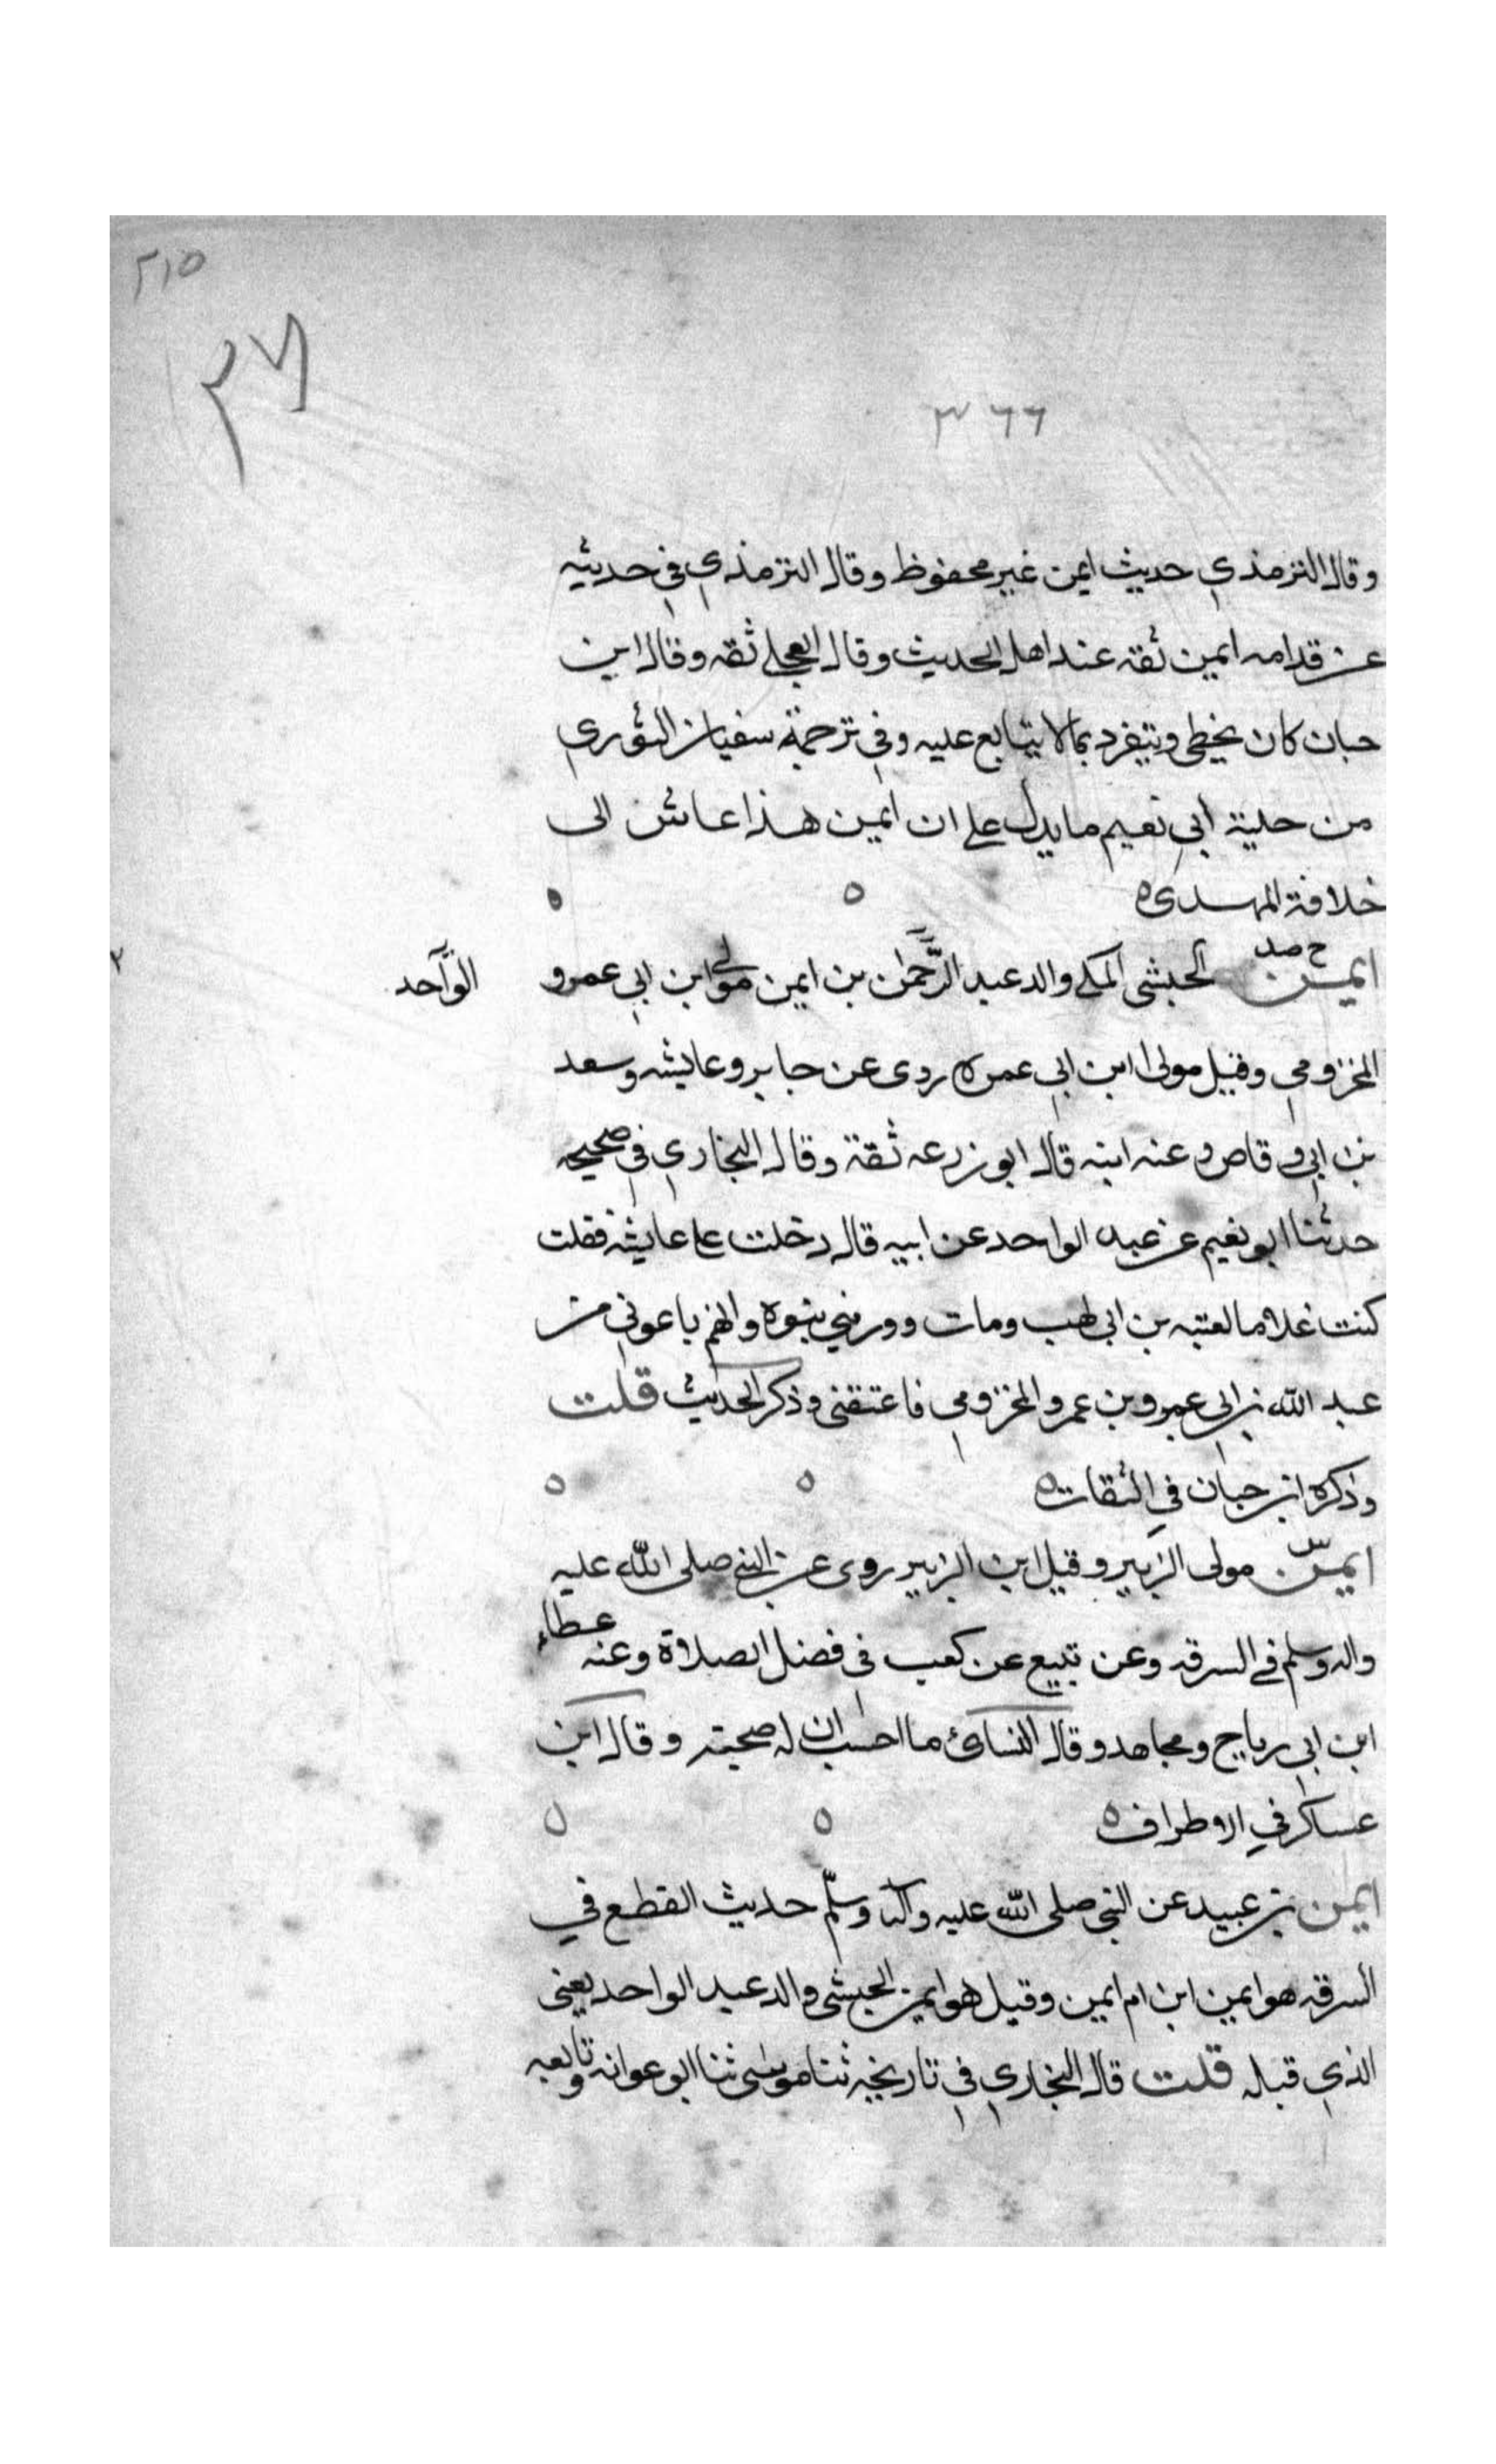 ٢١٥
٣٦٦
وقال الترمذي حديث ايمن غير محفوظ وقال الترمذي في حديثه
عن قدامه ايمن ثقة عند اهل الحديث وقال العجلي ثقه وقال ابن
حبان كان يخطي ويتفرد بما لا يتابع عليه وفي ترجمة سفيان الثوري
من حلية ابي نعيم ما يدل على ان ايمن هذا عاش الى
خلافة المهدي ه
ايمن الحبشي المكي والد عبد الرحمن بن ايمن مولى ابن ابي عمرو
الواحد
المخزومي وقيل مولى ابن ابي عمره روى عن جابر وعايشه وسعد
بن ابي وقاص وعنه ابنه قال ابو زرعه ثقة وقال البخاري في صحيحه
حدثنا ابو نعيم عن عبد الواحد عن ابيه قال دخلت على عايشه فقلت
كنت غلاما لعتبه بن ابي لهب ومات وورثني بنوه وانهم باعوني من
عبد الله بن ابي عمرو بن عمر والمخزومي فاعتقني وذكر الحديث قلت
وذكره ابن حبان في الثقات ه
ايمن مولى الزبير وقيل ابن الزبير روى عن النبي صلى الله عليه
واله وسلم في السرقه وعن تبيع عن كعب في فضل الصلاة وعنه عطاء
ابن ابي رباح ومجاهد وقال النسائ ما احسب ان له صحبته وقال ابن
عساكر في الاطراف ه
ايمن بن عبيد عن النبي صلى الله عليه وآله وسلم حديث القطع في
السرقه هو ايمن ابن ام ايمن وقيل هو ايمن الحبشي والد عبد الواحد يعني
الذي قبله قلت قال البخاري في تاريخه ثنا موسى ثنا ابو عوانه وتابعه